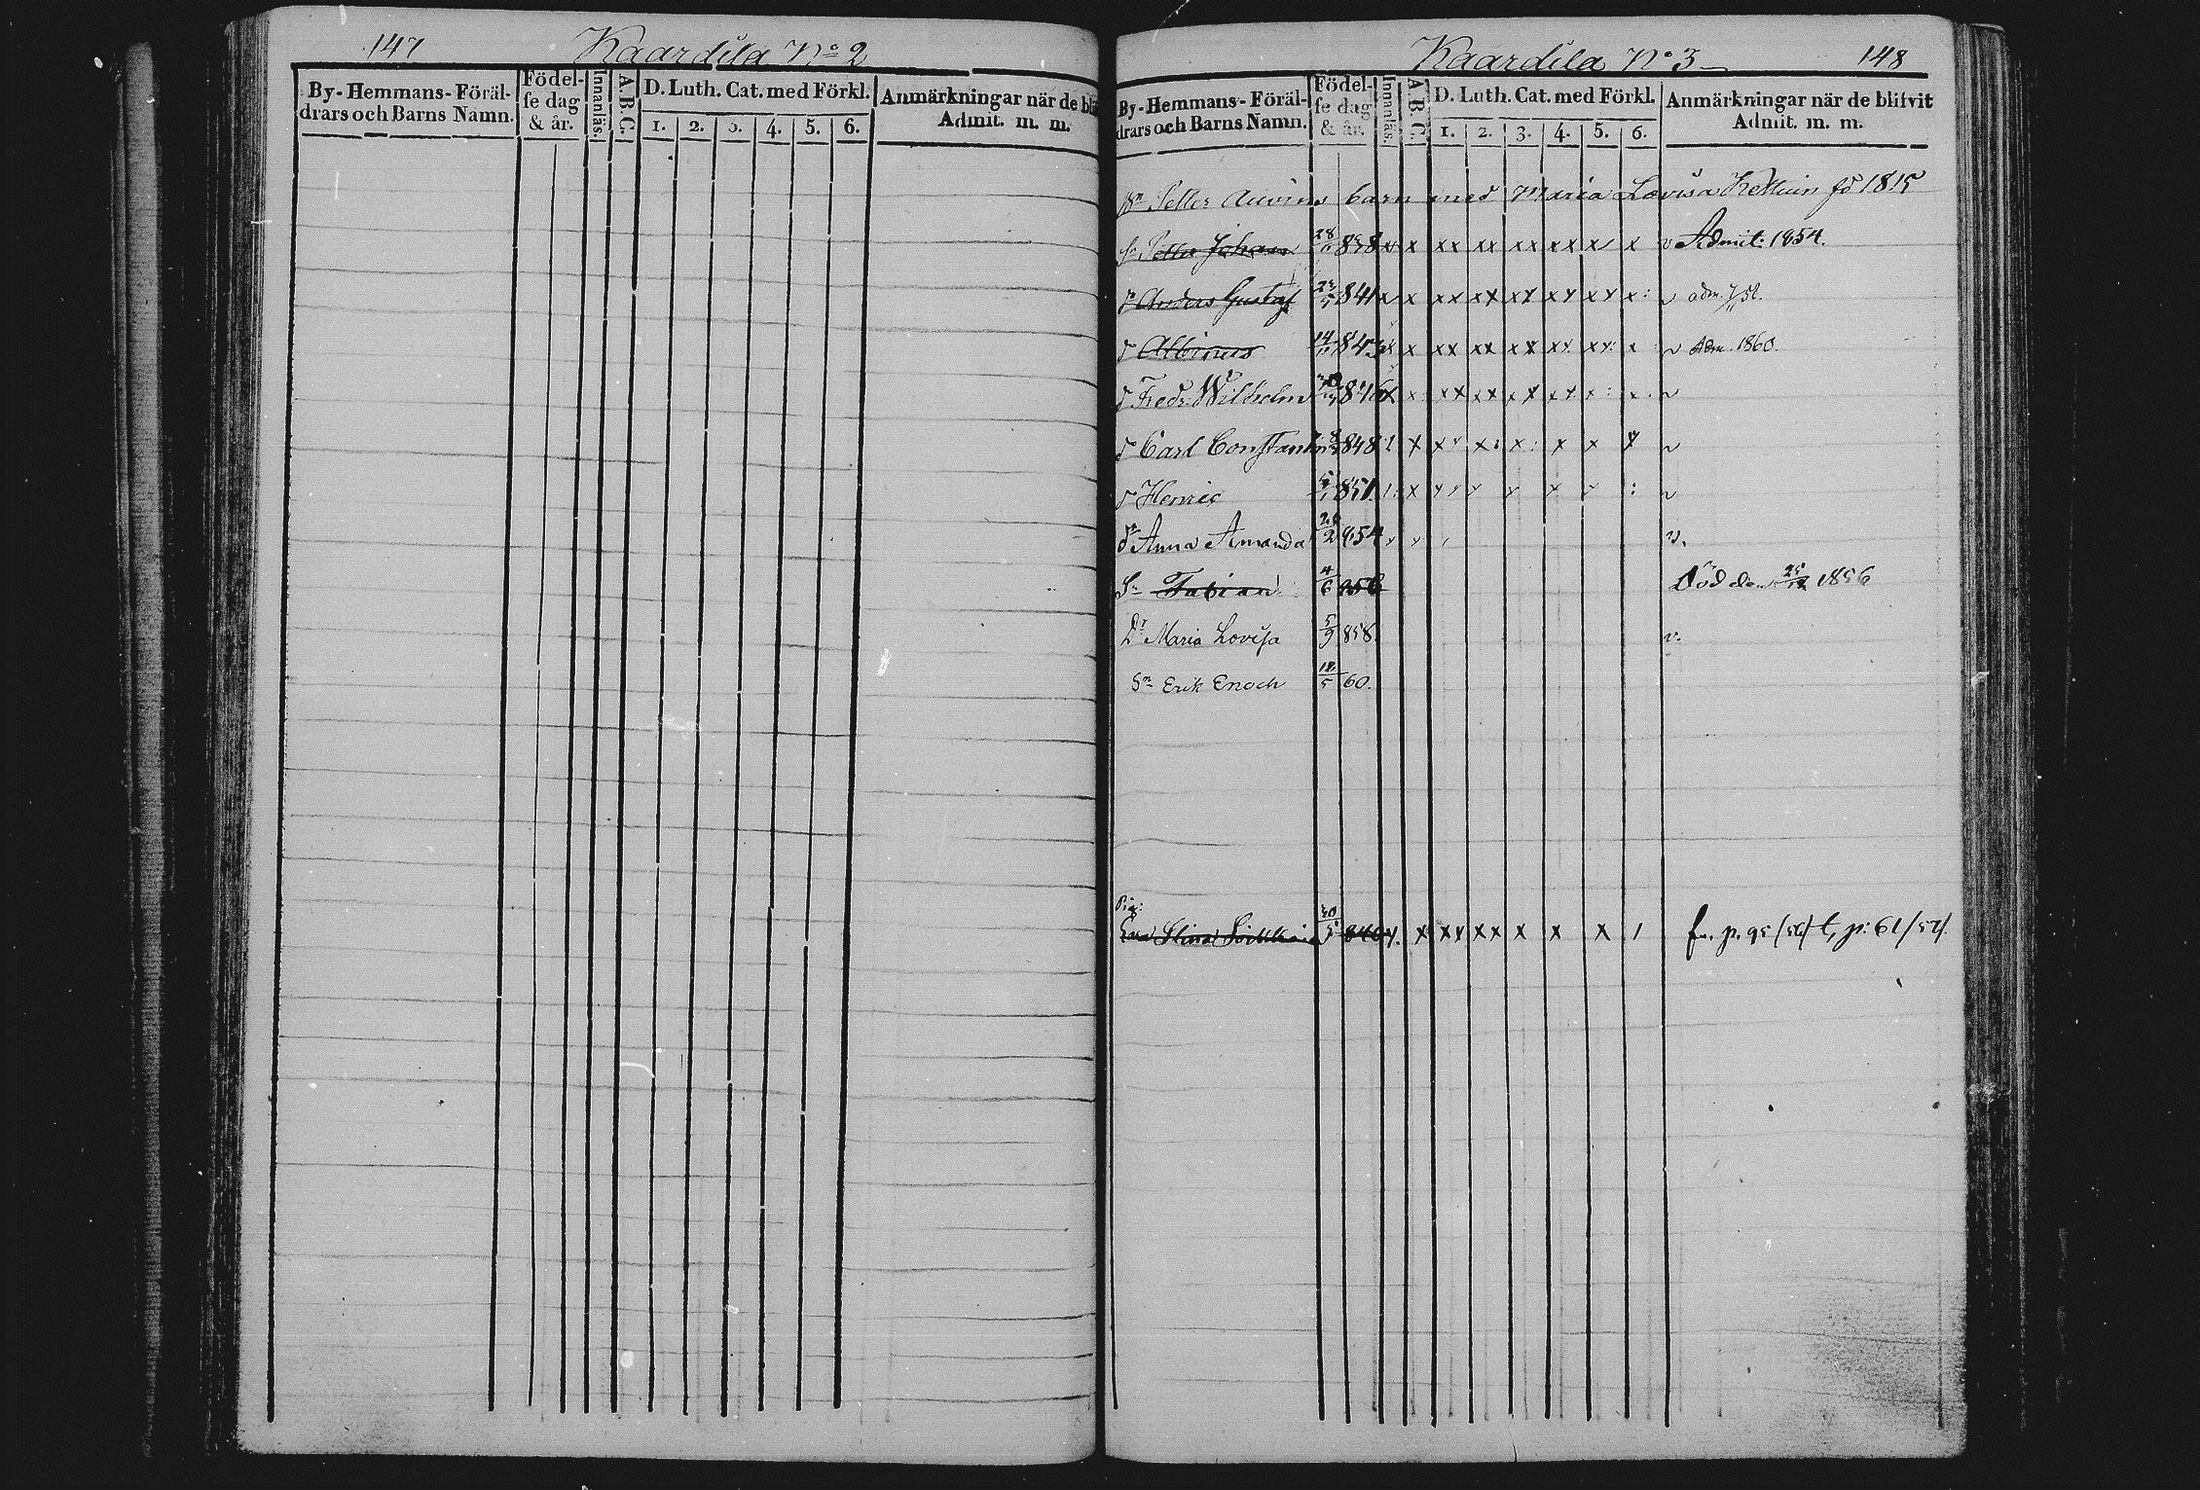 147 Kaardila No 2
By-Hemmans-Föräl-drars och Barns Namn. Födel-se dag & år. Innanläs. A.B.C. D. Luth. Cat. med Förkl. 1. 2. 3. 4. 5. 6. Anmärkningar när de bli Admit. m. m.
Kaardila No 3 148
By-Hemmans-Föräl-drars och Barns Namn. Födel-se dag & år. Innanläs. A.B.C. D. Luth. Cat. med Förkl. 1. 2. 3. 4. 5. 6. Anmärkningar när de blifvit Admit. m. m.
Petter barn med Maria Lovisa fö 1815
Sn Petter Johan 838 x x xx xx xx xx x x Admit: 1854.
Sn Anders Gustaf 841 x x xx xx xx xx xx x: adm.
Sn Albinus 843 x x xx xx xx xx xx: x Adm. 1860.
Sn Fredr. Wilhelm 846 x x xx xx xx xx x: x.
Sn Carl Constantin 848 x xx x: x: x x x
Sn Henric 851 x
Dr Anna Amanda 2 854 v.
Sn Fabian 4/6 856 Död den 1856
Dr Maria Lovisa 5/9 858. v.
Sn Erik Enoch 18/5 60.
Pig:
Eva Stina 840 x. x xx xx x x x / fr. p. 95 /56/ t, p: 61/57/.